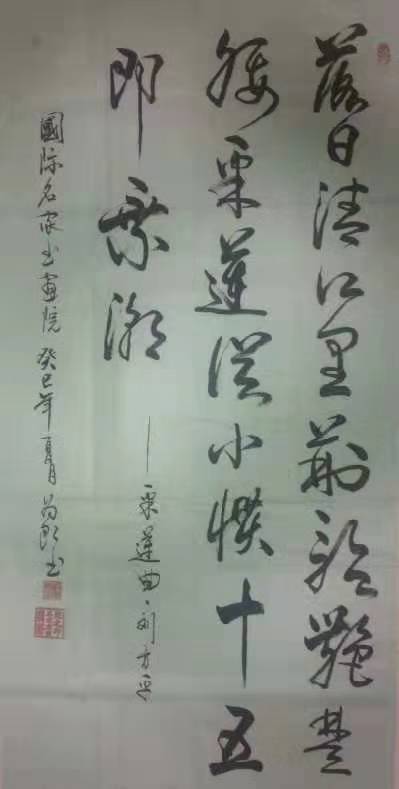 落日清江里荆歌艷楚
腰采蓮從小慣十五
即乘潮
——采蓮曲、刘方平
國际名家书画院 癸巳年夏月 书